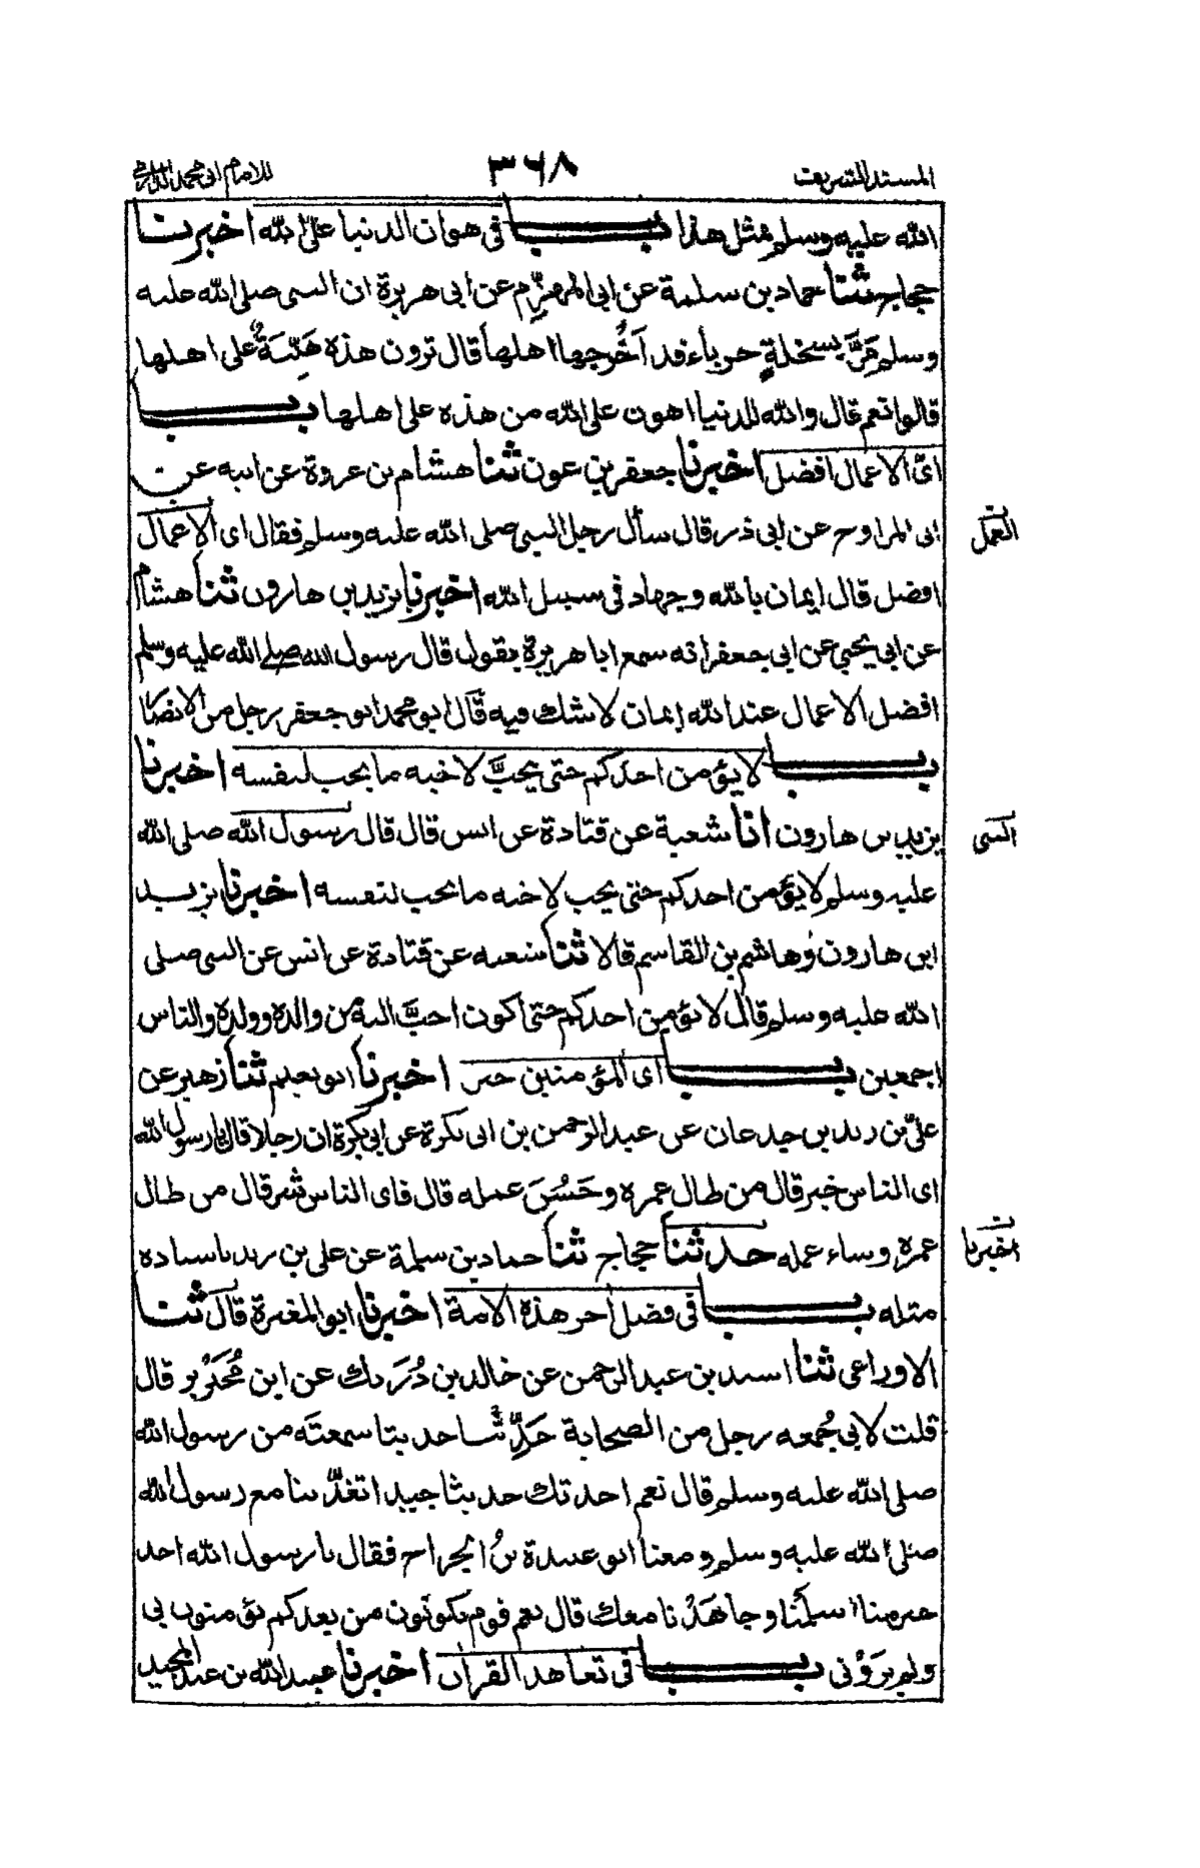 المسند الشريف ٣٦٨ للامام ابى محمد الدارمى
الله عليه وسلم مثل هذا باب فى هوان الدنيا على الله اخبرنا
حجاج ثنا حماد بن سلمة عن ابى المهزّم عن ابى هريرة ان النبى صلى الله عليه
وسلم مَرَّ بسخلةٍ جرباء قد اَخْرجها اهلها قال ترون هذه هَيّنةٌ على اهلها
قالوا نعم قال والله للدنيا اهون على الله من هذه على اهلها باب
اىّ الاعمال افضل اخبرنا جعفر بن عون ثنا هشام بن عروة عن ابيه عن
ابى المراوح عن ابى ذر قال سأل رجل النبى صلى الله عليه وسلم فقال اى الاعمال
العمل
افضل قال ايمان بالله وجهاد فى سبيل الله اخبرنا يزيد بن هارون ثنا هشام
عن ابى يحيى عن ابى جعفر انه سمع ابا هريرة يقول قال رسول الله صلى الله عليه وسلم
افضل الاعمال عند الله ايمان لا شك فيه قال ابو محمد ابو جعفر رجل من الانصار
باب لا يؤمن احدكم حتى يحبَّ لاخيه ما يحب لنفسه اخبرنا
يزيد بن هارون انا شعبة عن قتادة عن انس قال قال رسول الله صلى الله
النبى
عليه وسلم لا يؤمن احدكم حتى يحب لاخيه ما يحب لنفسه اخبرنا يزيد
ابن هارون وهاشم بن القاسم قالا ثنا شعبه عن قتادة عن انس عن النبى صلى
الله عليه وسلم قال لا يؤمن احدكم حتى اكون احبَّ اليه من والده وولده والناس
اجمعين باب اى المؤمنين خير اخبرنا ابو نعيم ثنا زهير عن
علىّ بن زيد بن جدعان عن عبد الرحمن بن ابى بكرة عن ابى بكرة ان رجلا قال يا رسول الله
اى الناس خير قال من طال عمره وحَسُنَ عمله قال فاى الناس شر قال من طال
عمره وساء عمله حدثنا حجاج ثنا حماد بن سلمة عن على بن زيد باسناده
اخبرنا
مثله باب فى فضل اخر هذه الامة اخبرنا ابو المغيرة قال ثنا
الاوزاعى ثنا اسيد بن عبد الرحمن عن خالد بن دُرَيك عن ابن مُحَيْريز قال
قلت لابى جُمعه رجل من الصحابة حَدِّثْنا حديثا سمعتَه من رسول الله
صلى الله عليه وسلم قال نعم احدثك حديثا جيدا تغدّينا مع رسول الله
صلى الله عليه وسلم ومعنا ابو عبيدة بنُ الجراح فقال يا رسول الله احد
خير منا اسلَمْنا وجاهَدْنا معك قال نعم قوم يكونون من بعدكم يؤمنون بى
ولم يرَوْنى باب فى تعاهد القران اخبرنا عبيد الله بن عبد المجيد